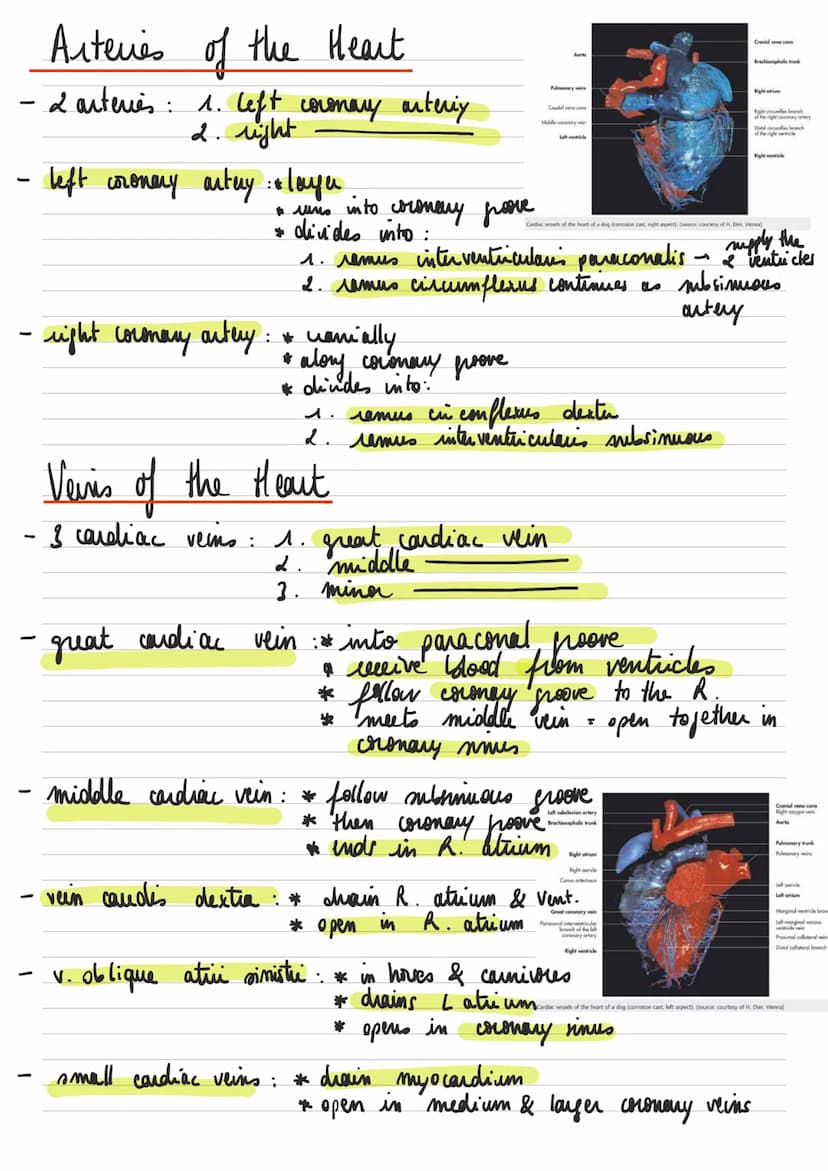 Arteries of the Heart
- 2 arteries : 1. left coronary arteriy
2. right ————
Aorta
Pulmonary veins
Caudal vena cava
Middle coronary vein
Left ventricle
Cranial vena cava
Brachiocephalic trunk
Right atrium
Right circumflex branch
of the right coronary artery
Distal circumflex branch
of the right ventricle
Right ventricle
Cardiac vessels of the heart of a dog (corrosion cast, right aspect). (source: courtesy of H. Dier, Vienna)
- left coronary artery : * larger
* runs into coronary groove
* divides into :
1. ramus interventricularis paraconalis → supply the
2 ventricles
2. ramus circumflexus continues as subsinuous
artery
- right coronary artery : * cranially
* along coronary groove
* divides into :
1. ramus circonflexus dexter
2. ramus interventricularis subsinuous
Veins of the Heart
- 3 cardiac veins : 1. great cardiac vein
2. middle ————
3. minor ————
- great cardiac vein : * into paraconal groove
* receive blood from ventricles
* follow coronary groove to the R.
* meets middle vein = open together in
coronary sinus
- middle cardiac vein : * follow subsinuous groove
* then coronary groove
* ends in R. atrium
- vein caudis dextra : * drain R. atrium & vent.
* open in R. atrium
- v. oblique atrii sinistri : * in horses & carnivores
* drains L atrium
* opens in coronary sinus
Left subclavian artery
Brachiocephalic trunk
Right atrium
Right auricle
Conus arteriosus
Great coronary vein
Paraconal interventricular
branch of the left
coronary artery
Right ventricle
Cranial vena cava
Right azygos vein
Aorta
Pulmonary trunk
Pulmonary veins
Left auricle
Left atrium
Marginal ventricle bran
Left marginal venous
ventricle vein
Proximal collateral vein
Distal collateral branch
Cardiac vessels of the heart of a dog (corrosion cast, left aspect). (source: courtesy of H. Dier, Vienna)
- small cardiac veins : * drain myocardium
* open in medium & larger coronary veins